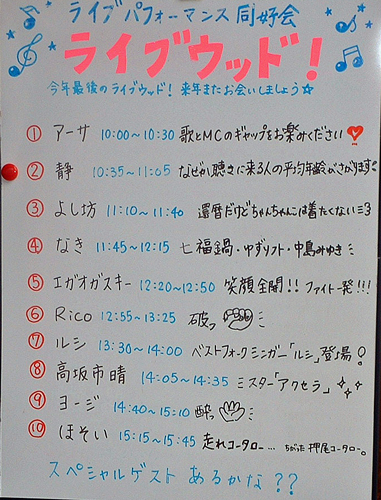 ライブパフォーマンス同好会
ライブウッド!
今年最後のライブウッド! 来年またお会いしましょう☆
① アーサ 10:00~10:30 歌とMCのギャップをお楽みください
② 静 10:35~11:05 なぜか聴きに来る人の平均年齢がさがります。
③ よし坊 11:10~11:40 還暦だけどちゃんちゃんこは着たくない
④ なき 11:45~12:15 七福鍋・ゆずソフト・中島みゆき
⑤ エガオガスキー 12:20~12:50 笑顔全開!! ファイト一発!!!
⑥ Rico 12:55~13:25 破っ
⑦ ルシ 13:30~14:00 ベストフォークシンガー「ルシ」登場!
⑧ 高坂市晴 14:05~14:35 ミスター「アクセラ」
⑨ ヨージ 14:40~15:10 酔っ
⑩ ほそい 15:15~15:45 走れコータロー… ちがった 押尾コータロー。
スペシャルゲスト あるかな??